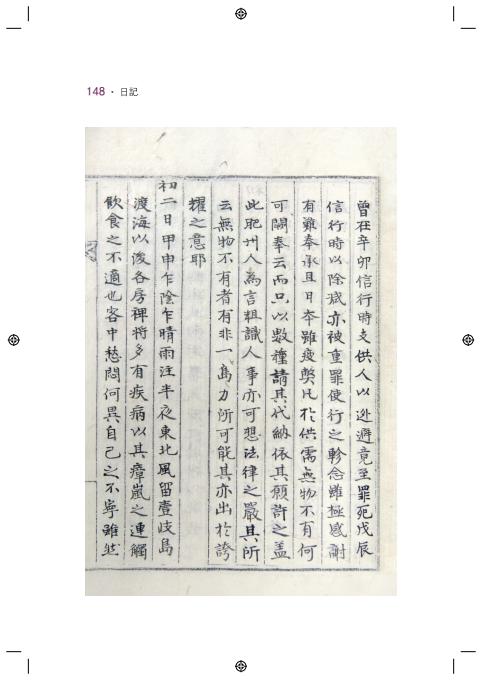 148 · 日記
曾在辛卯信行時支供人以逃避竟至罪死戊辰
信行時以除感亦被重罪使行之軫念雖極感謝
有難奉承且日本雖疲弊凡於供需無物不有何
可闕奉云而只以數種請其代納依其願許之盖
此肥州人爲言粗識人事亦可想法律之嚴其所
云無物不有者有非一島力所可能其亦出於誇
耀之意耶
初二日甲申乍陰乍晴雨注半夜東北風留壹岐島
渡海以後各房裨將多有疾病以其瘴嵐之連觸
飮食之不適也客中愁悶何異自己之不寧雖然